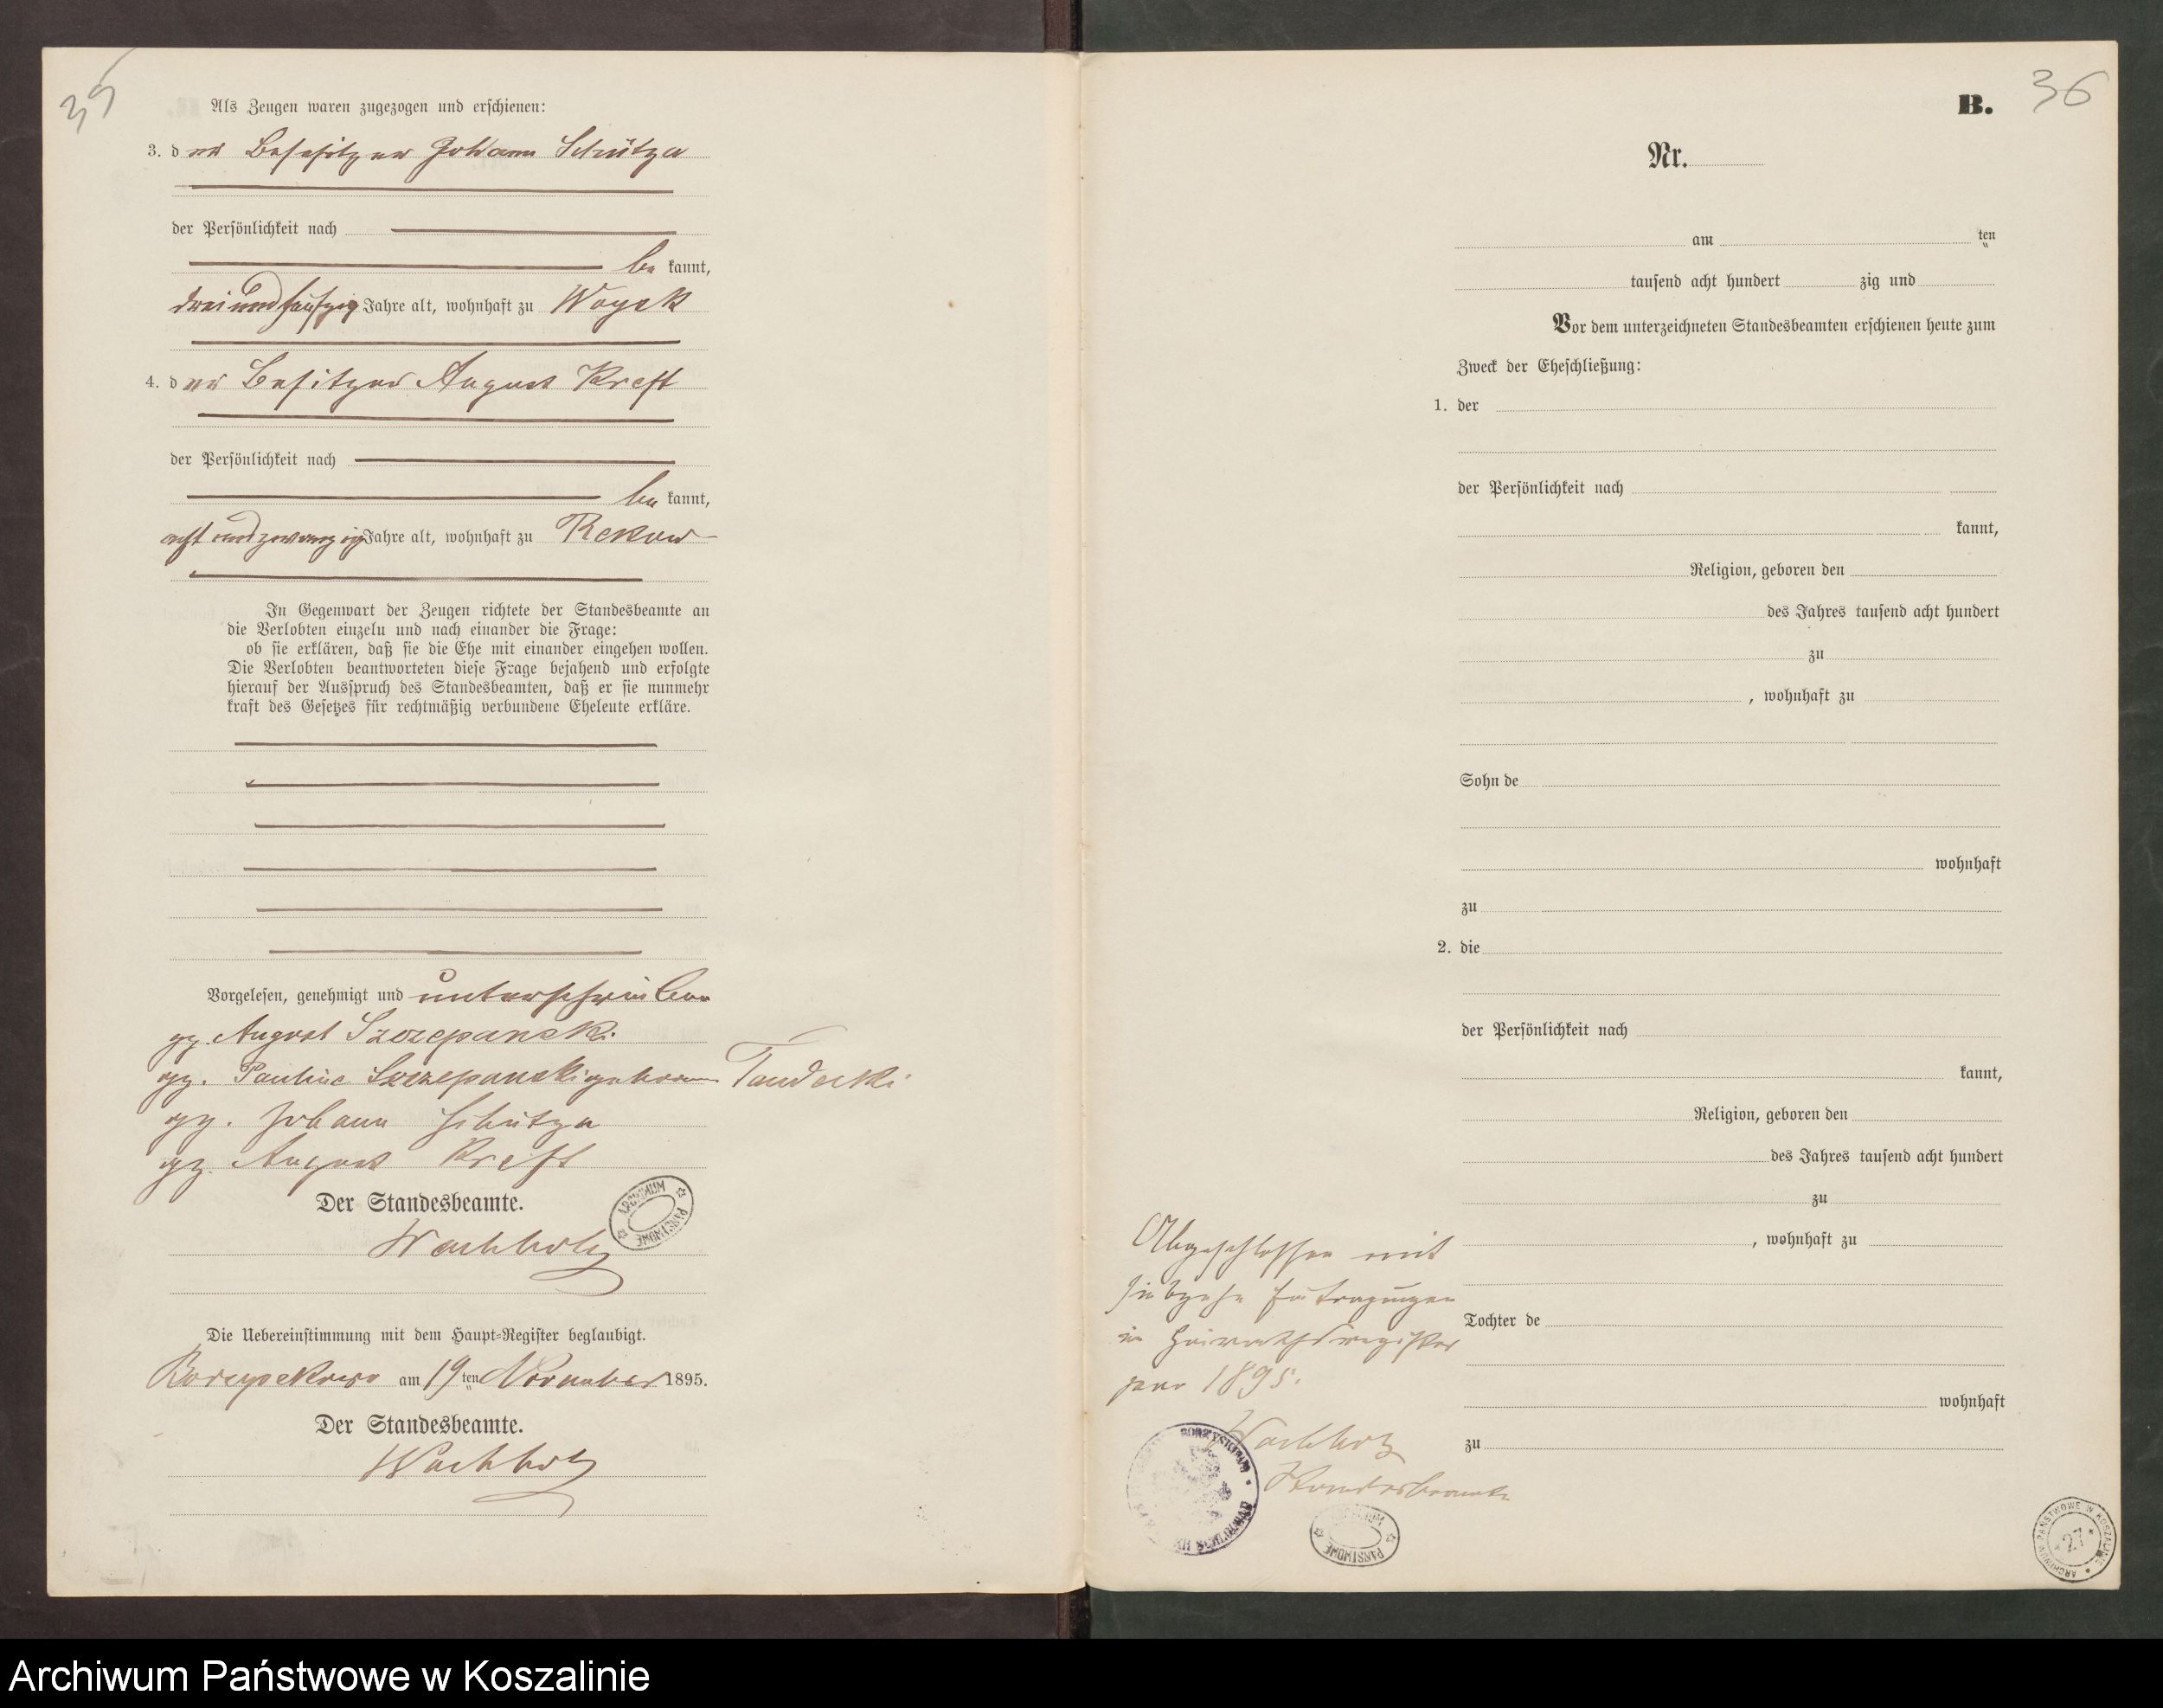 35
Als Zeugen waren zugezogen und erschienen:
3. der Besitzer Johann Schütza
der Persönlichkeit nach
be kannt,
dreiundfünfzig Jahre alt, wohnhaft zu Woyek
4. der Besitzer August Kreft
der Persönlichkeit nach
be kannt,
acht und zwanzig Jahre alt, wohnhaft zu Rekow
In Gegenwart der Zeugen richtete der Standesbeamte an
die Verlobten einzeln und nach einander die Frage:
ob sie erklären, daß sie die Ehe mit einander eingehen wollen.
Die Verlobten beantworteten diese Frage bejahend und erfolgte
hierauf der Ausspruch des Standesbeamten, daß er sie nunmehr
kraft des Gesetzes für rechtmäßig verbundene Eheleute erkläre.
Vorgelesen, genehmigt und unterschrieben
gz. August Szczepanski.
gz. Pauline Szczepanski geboren Taudecki.
gz. Johann Schütza
gz. August Kreft
Der Standesbeamte.
ARCHIWUM PAŃSTWOWE
Wachholz
Die Uebereinstimmung mit dem Haupt-Register beglaubigt.
Borzyskowo am 19 ten November 1895.
Der Standesbeamte.
Wachholz
36
B.
Nr.
am ten
tausend acht hundert zig und
Vor dem unterzeichneten Standesbeamten erschienen heute zum
Zweck der Eheschließung:
1. der
der Persönlichkeit nach
kannt,
Religion, geboren den
des Jahres tausend acht hundert
zu
, wohnhaft zu
Sohn de
wohnhaft
zu
2. die
der Persönlichkeit nach
kannt,
Religion, geboren den
des Jahres tausend acht hundert
zu
, wohnhaft zu
Tochter de
wohnhaft
zu
Abgeschlossen mit
siebzehn Eintragungen
im Heirathsregister
pro 1895.
Wachholz
Standesbeamte
ARCHIWUM PAŃSTWOWE
ARCHIWUM PAŃSTWOWE W KOSZALINIE
27
Archiwum Państwowe w Koszalinie